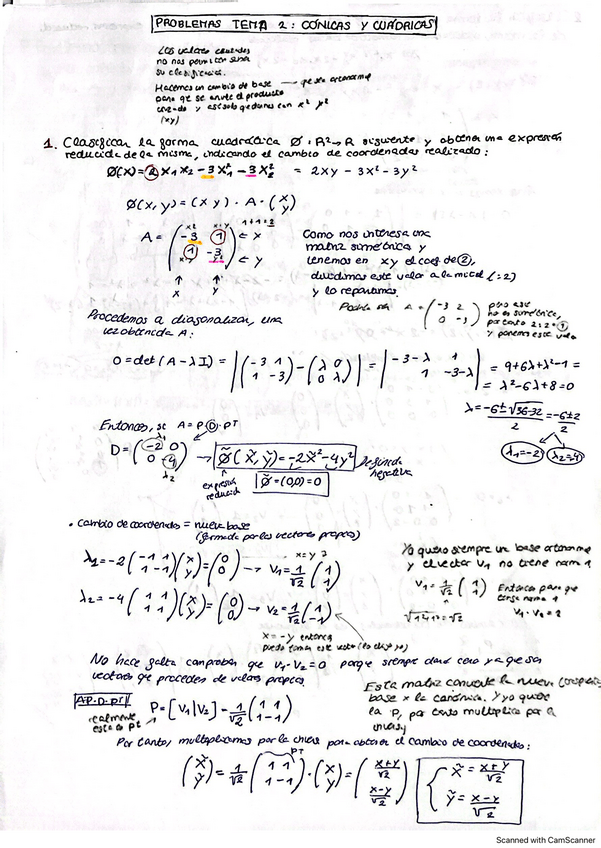 PROBLEMAS TEMA 2: CÓNICAS Y CUÁDRICAS
Los valores cruzados
no nos permiten saber
su clasificación.
Hacemos un cambio de base — que sea ortonorme
para que se anule el producto
cruzado y así solo quedarnos con x² y²
(xy)
1. Clasificar la forma cuadrática Ø: R²→R siguiente y obtener una expresión
reducida de la misma, indicando el cambio de coordenadas realizado:
Ø(x) = 2x₁x₂ - 3x₁² - 3x₂² = 2xy - 3x² - 3y²
Ø(x,y) = (x y) · A · (x y)
A = (-3 1 1 -3) ← x ← y
x² x·y 1+1=2
x·y y²
↑ x ↑ y
Como nos interesa una
matriz simétrica y
tenemos en xy el coef de 2,
dividimos este valor a la mitad (÷2)
y lo repartimos.
Podría ser A = (-3 2 0 -3)
pero esta
no es simétrica,
por tanto 2:2=1
y ponemos este valor
Procedemos a diagonalizar, una
vez obtenida A:
0 = det(A - λI) = |(-3 1 1 -3) - (λ 0 0 λ)| = |-3-λ 1 1 -3-λ| = 9+6λ+λ²-1 =
= λ²-6λ+8=0
λ = -6±√36-32 / 2 = -6±2 / 2
λ₁=-2 λ₂=-4
Entonces, si A = P D Pᵀ
D = (-2 0 0 -4) → Ø̃(x̃, ỹ) = -2x̃² - 4y² Definida
negativa
λ₁
λ₂
expresión
reducida
Ø̃ = (0,0) = 0
• Cambio de coordenadas = nueva base
(formada por los vectores propios)
λ₁=-2 (-1 1 1 -1)(x y) = (0 0) → v₁ = 1/√2 (1 1)
x=y
λ₂=-4 (1 1 1 1)(x y) = (0 0) → v₂ = 1/√2 (1 -1)
x=-y entonces
puedo tomar este vector (lo elijo yo)
Yo quiero siempre una base ortonorme
y el vector v₁ no tiene norma 1
v₁ = 1/√2 (1 1) Entonces para que
tenga norma 1
√1²+1² = √2
No hace falta comprobar que v₁·v₂ = 0 porque siempre dará cero ya que son
vectores que proceden de valores propios.
A·P·D·Pᵀ
realmente
esta es Pᵀ
P = [v₁|v₂] = 1/√2 (1 1 1 -1)
Esta matriz convierte la nueva
base x la canónica. Y yo quiero
la P, por tanto multiplico por la
Por tanto, multiplicamos por la para obtener el cambio de coordenadas:
Pᵀ
(x̃ ỹ) = 1/√2 (1 1 1 -1) · (x y) = (x+y/√2 x-y/√2)
{ x̃ = x+y/√2
ỹ = x-y/√2
Scanned with CamScanner